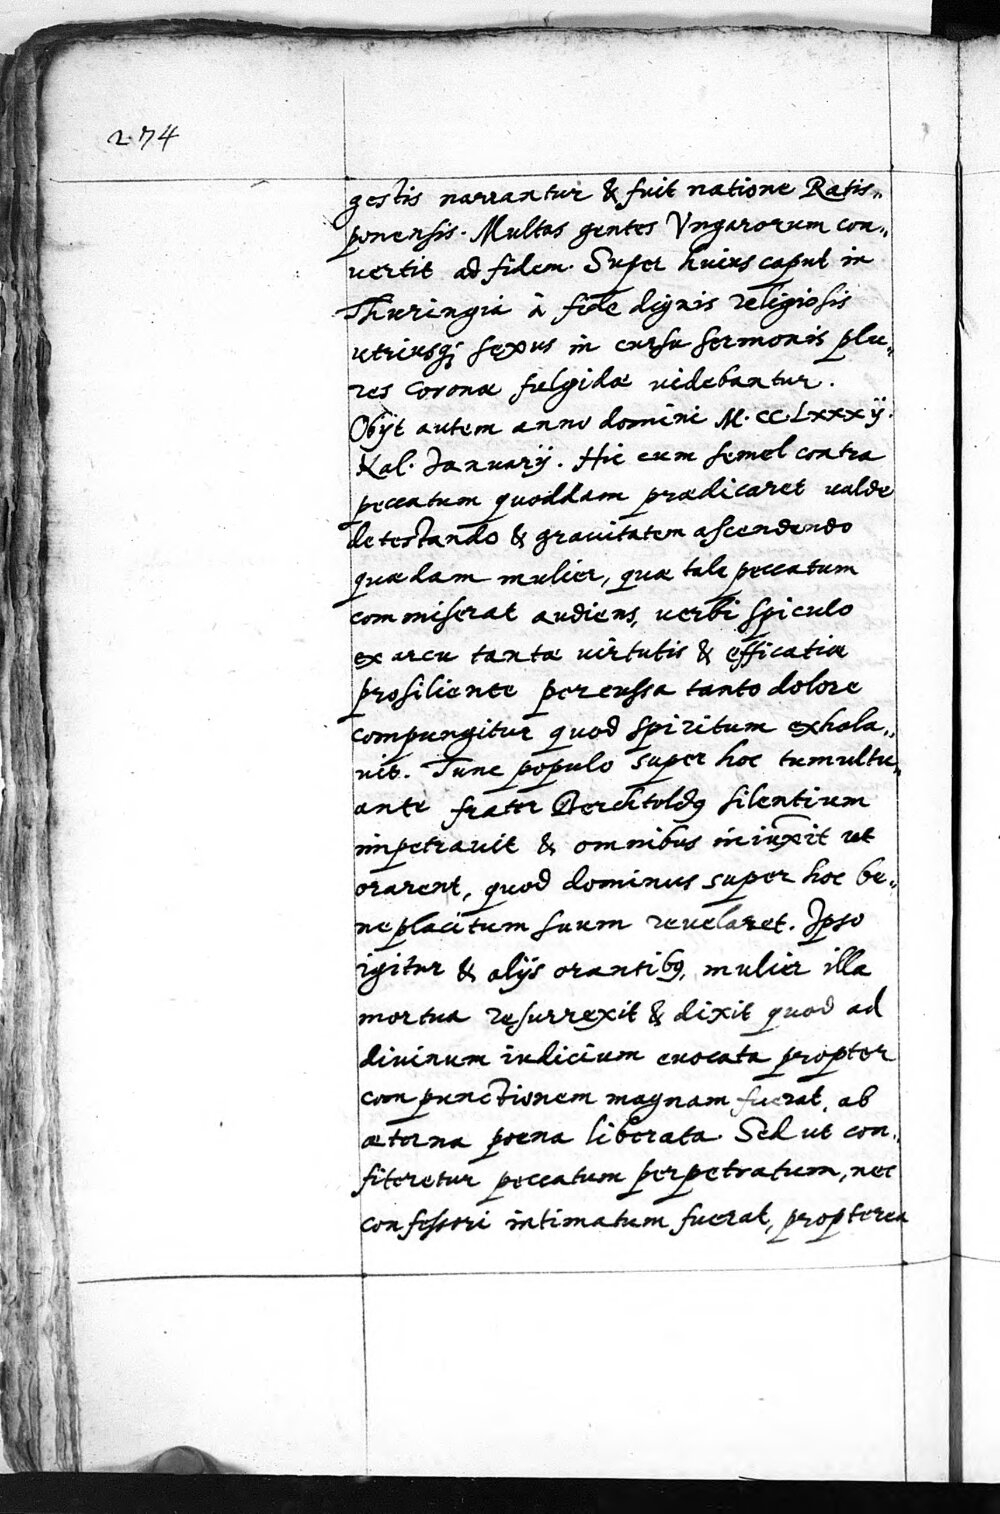 274
gestis narrantur & fuit natione Ratis„
ponensis. Multas gentes Vngarorum con„
uertit ad fidem. Super huius caput in
Thuringia à fide dignis religiosis
utriusq; sexus in cursu sermonis plu„
res coronæ fulgidæ uidebantur.
Obijt autem anno domini M.CCLxxxij.
Kal. Januarij. Hic cum semel contra
peccatum quoddam prædicaret ualde
detestando & grauitatem ascendendo
quædam mulier, quæ tale peccatum
commiserat audiens, uerbi spiculo
ex arcu tantæ uirtutis & efficatiæ
prosiliente percussa tanto dolore
compungitur quod spiritum exhala„
uit. Tunc populo super hoc tumultu„
ante frater Berchtoldꝰ silentium
impetrauit & omnibus iniuxit ut
orarent, quod dominus super hoc be„
neplacitum suum reuelaret. Ipso
igitur & alijs orantibꝰ, mulier illa
mortua resurrexit & dixit quod ad
diuinum iudicium euocata propter
compunctionem magnam fuerat, ab
æterna poena liberata. Sed ut con„
fiteretur peccatum perpetratum, nec
confessori intimatum fuerat, propterea